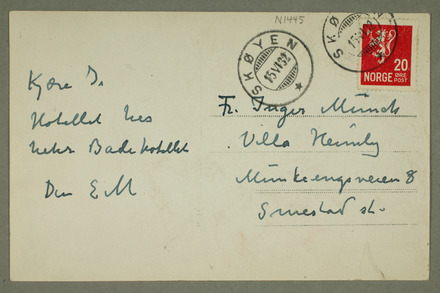 N1445
SKØYEN
15 VI 32
SKØYEN
20
NORGE ØRE
POST
Kjære I.
Hotellet
Badehotellet
Din E M
Fr. Inger Munch
Villa Heimly
Munkeengsveien 8
Smestad st.